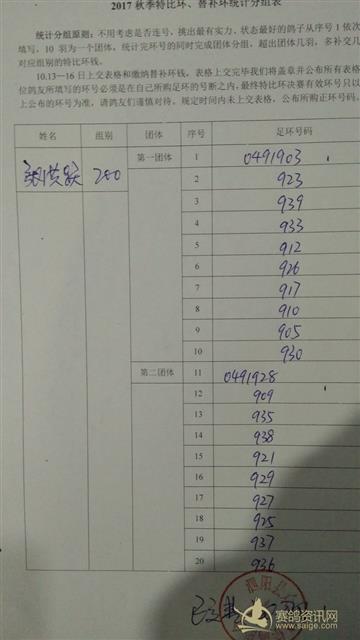 2017 秋季特比环、替补环统计分组表
统计分组原则：不用考虑是否连号，挑出最有实力、状态最好的鸽子从序号 1 依次
填写，10 羽为一个团体，统计完环号的同时完成团体分组，超出团体几羽，多补交几
对应组别的特比环钱。
10.13—16 日上交表格和缴纳替补环钱。表格上交完毕我们将盖章并公布所有表格
位鸽友所填写的环号必须是在自己所购足环的号断之内，最终特比环决赛有效环号只以
上公布的环号为准，请鸽友们谨慎对待。规定时间内未上交表格，公布所购正环号码。
姓名 组别 团体 序号 足环号码
第一团体 1 0491903
2 923
3 939
4 933
5 912
6 926
7 917
8 910
9 905
10 930
第二团体 11 0491928
12 909
13 935
14 938
15 921
16 929
17 927
18 925
19 937
20 936
赛鸽资讯网
www.saige.com